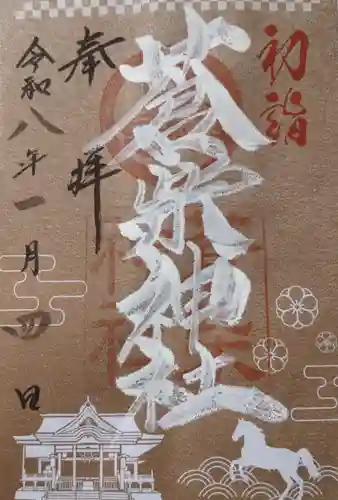 初詣
蒼柴神社
奉拝
令和八年一月四日